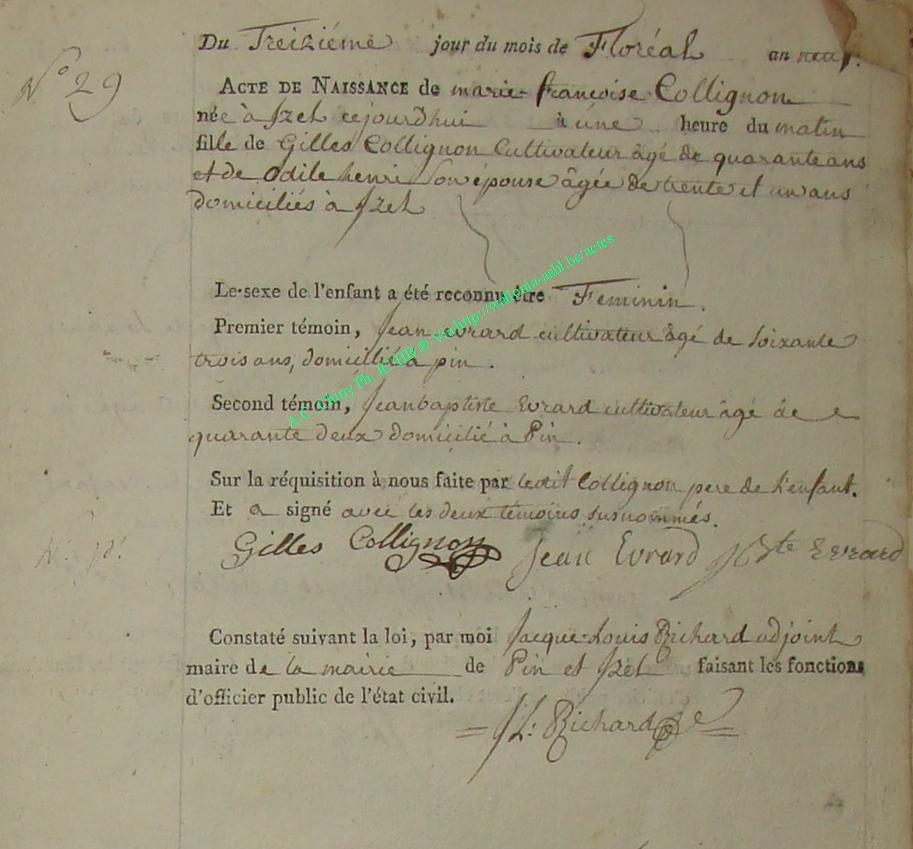 N.º 29
Du Treiziéme jour du mois de Floréal an neuf.
ACTE DE NAISSANCE de marie-françoise Collignon
née à Izel cejourd'hui à une heure du matin
fille de Gilles Collignon Cultivateur âgé de quarante ans
et de Odile henri son épouse âgée de trente et un ans
domiciliés à Izel
Le sexe de l'enfant a été reconnu être Feminin.
Premier témoin, Jean evrard cultivateur âgé de soixante
trois ans, domicilié à pin.
Second témoin, Jeanbaptiste Evrard cultivateur âgé de
quarante deux domicilié à Pin.
Sur la réquisition à nous faite par ledit Collignon pere de l'enfant.
Et a signé avec les deux témoins susnommés.
Gilles Collignon Jean Evrard JBte Evrard
Constaté suivant la loi, par moi Jacque-Louis Richard adjoint
maire de la mairie de Pin et Izel faisant les fonctions
d'officier public de l'état civil.
JL: Richard
http://wallonia-asbl.be/actes